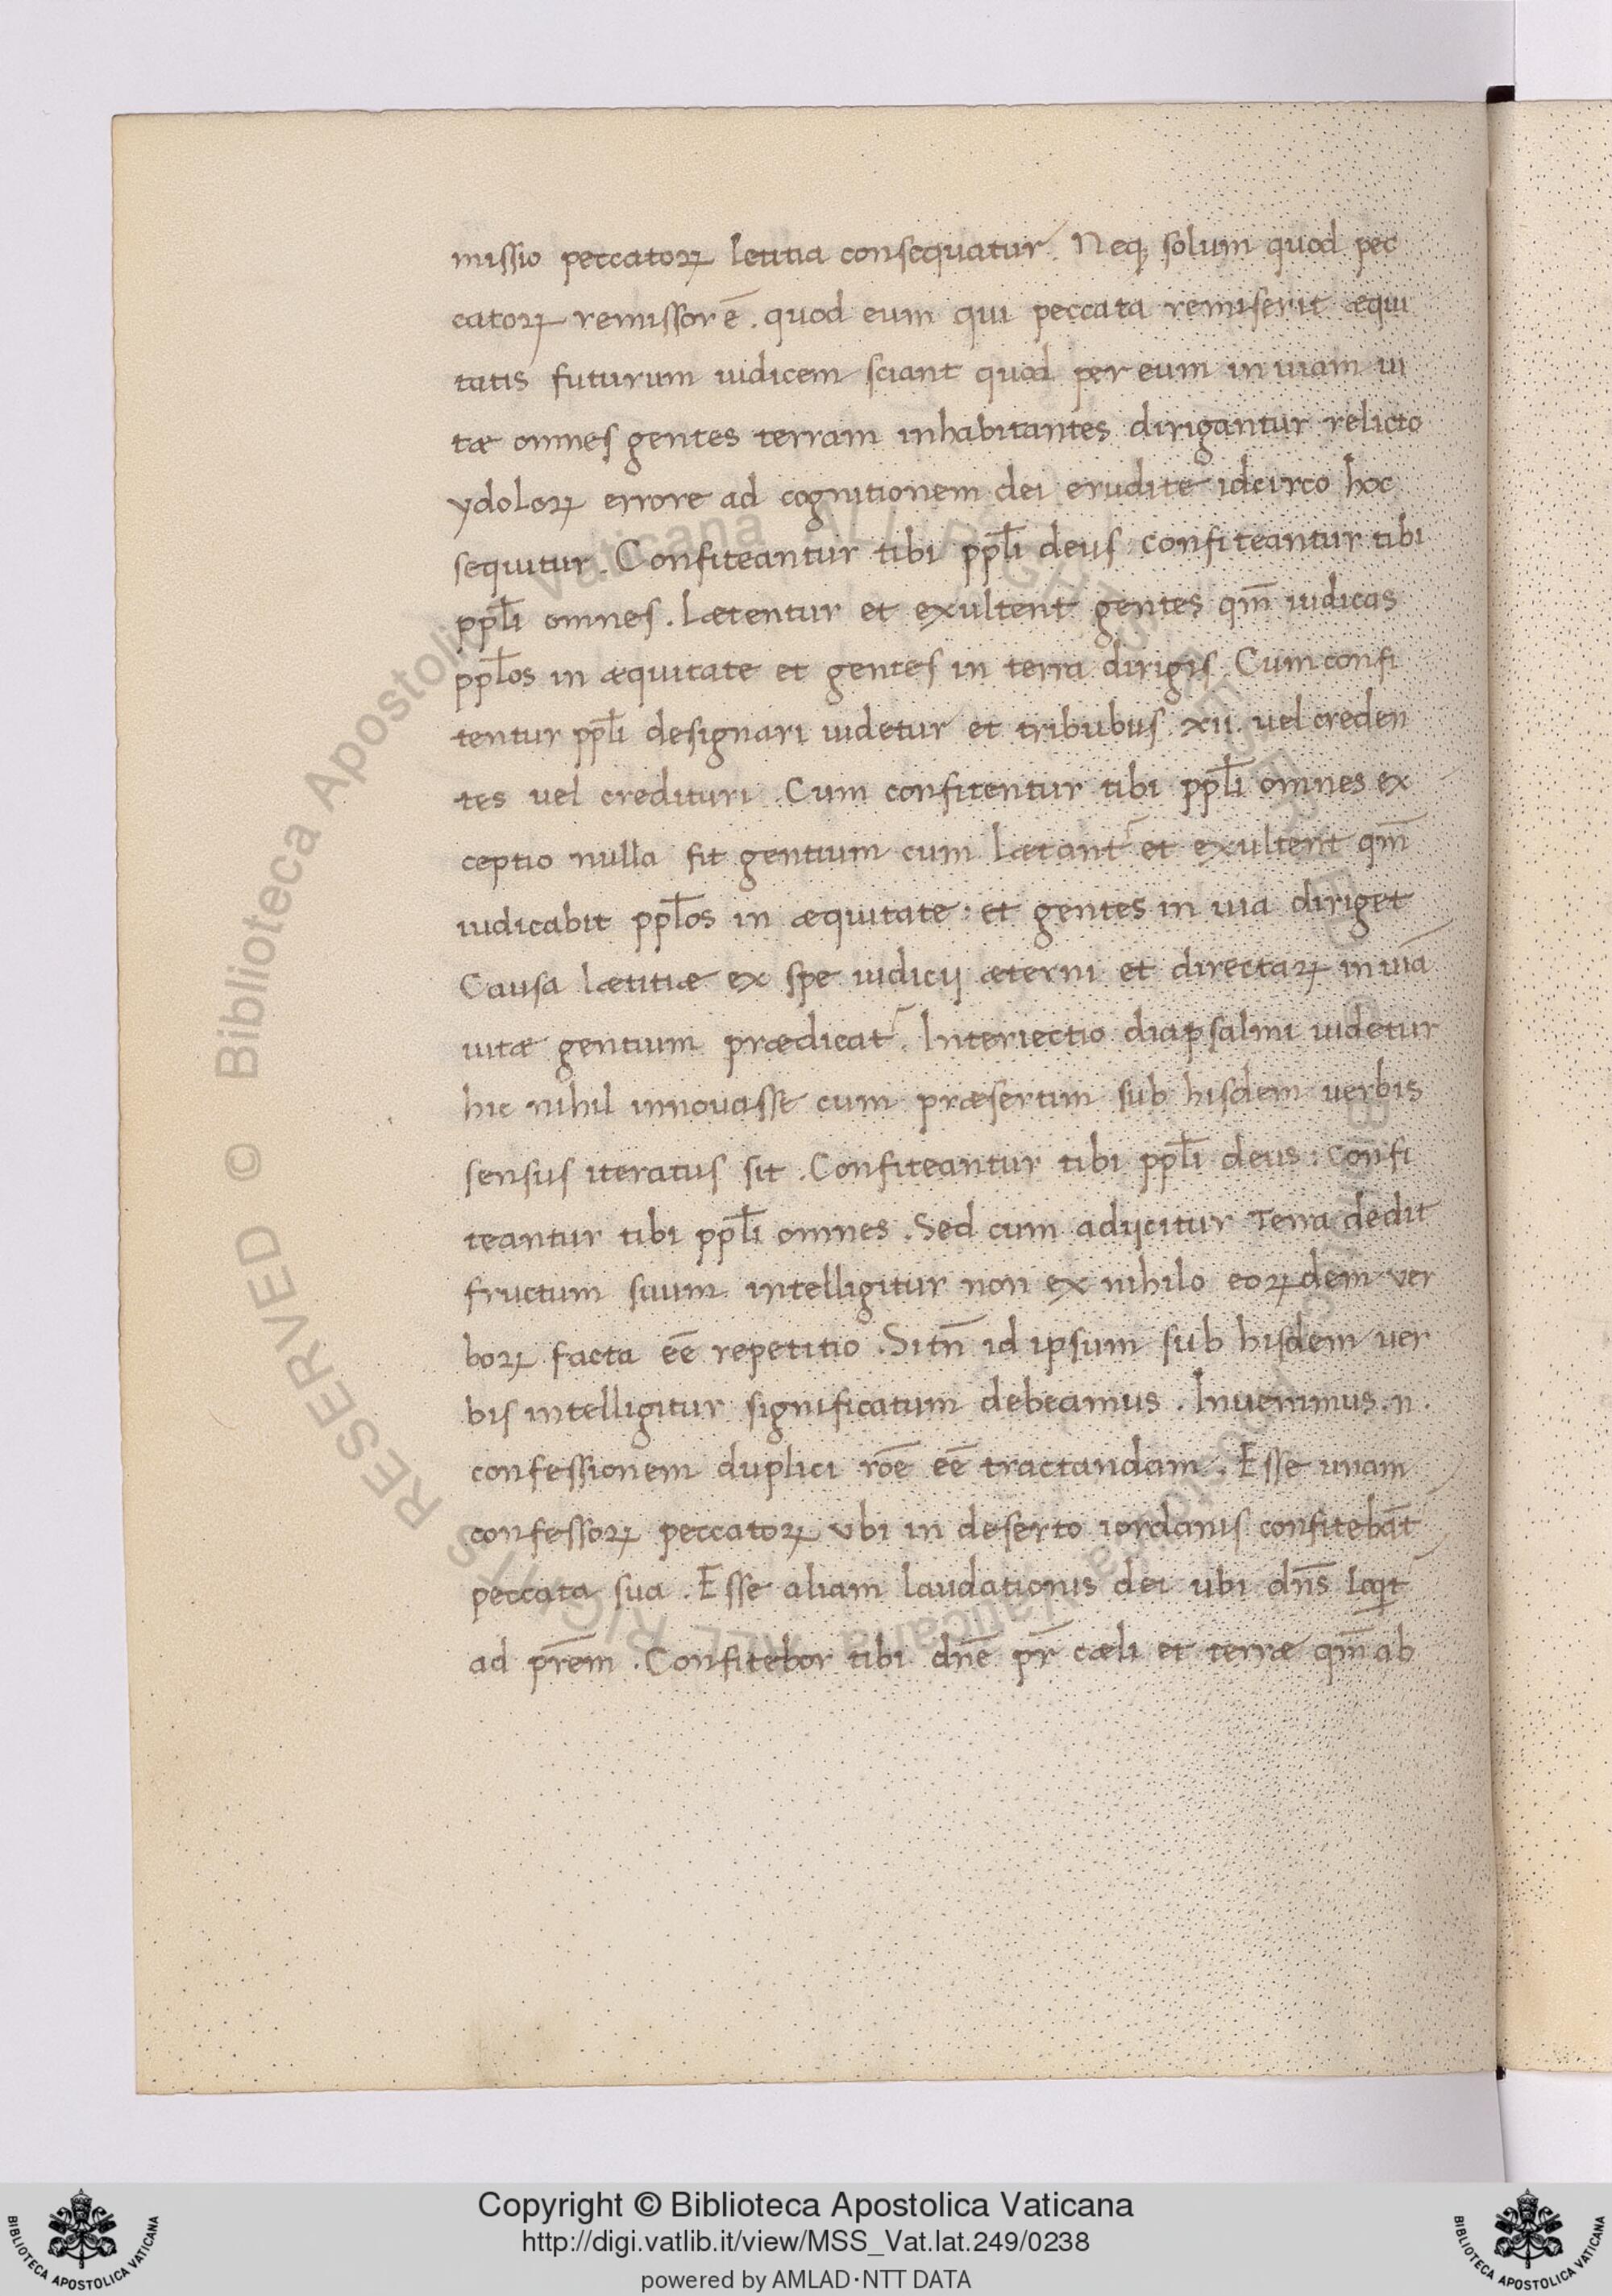 missio peccatoꝝ letitia consequatur. Neqꝫ solum quod pec
catoꝝ remissorē. quod eum qui peccata remiserit æqui
tatis futurum iudicem sciant quod per eum in uiam ui
tæ omnes gentes terram inhabitantes dirigantur relicto
ydoloꝝ errore ad cognitionem dei erudite idcirco hoc
sequitur. Confiteantur tibi ppl̄i deus: confiteantur tibi
ppl̄i omnes. Lætentur et exultent gentes qm̄ iudicas
ppl̄os in æquitate et gentes in terra dirigis. Cum confi
tentur ppl̄i designari uidetur et tribubus xii. uel creden
tes uel credituri. Cum confitentur tibi ppl̄i omnes ex
ceptio nulla fit gentium cum lætant᷑ et exultent qm̄
iudicabit ppl̄os in æquitate: et gentes in uia diriget
Causa lætitiæ ex spe iudicij æterni et directaꝝ in uiā
uitæ gentium prædicat᷑. Interiectio diapsalmi uidetur
hic nihil innouasse cum præsertim sub hisdem verbis
sensus iteratus sit. Confiteantur tibi ppl̄i deus: confi
teantur tibi ppl̄i omnes. Sed cum adijcitur Terra dedit
fructum suum intelligitur non ex nihilo eoꝝdem ver
boꝝ facta eē repetitio. Si tn̄ id ipsum sub hisdem ver
bis intelligitur significatum debeamus. Inuenimus .n.
confessionem duplici rōe eē tractandam. Esse unam
confessoꝝ peccatoꝝ vbi in deserto iordanis confitebāt᷑
peccata sua. Esse aliam laudationis dei ubi dn̄s loqt᷑
ad prēm. Confitebor tibi dn̄e pr̄ cæli et terræ qm̄ ab
Copyright © Biblioteca Apostolica Vaticana
http://digi.vatlib.it/view/MSS_Vat.lat.249/0238
powered by AMLAD·NTT DATA